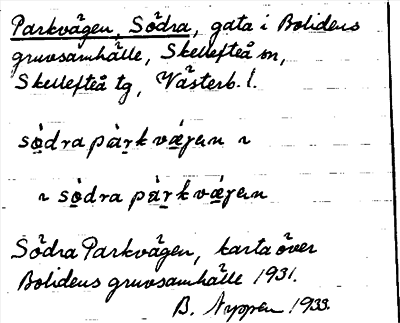 Parkvägen, Södra, gata i Bolidens
gruvsamhälle, Skellefteå sn,
Skellefteå tg, Västerb. l.
sò̤dra pàr̤kvæ̤gen ~
~ sò̤dra pàr̤kvæ̤gen
Södra Parkvägen, karta över
Bolidens gruvsamhälle 1931.
B. Nyppen 1933.